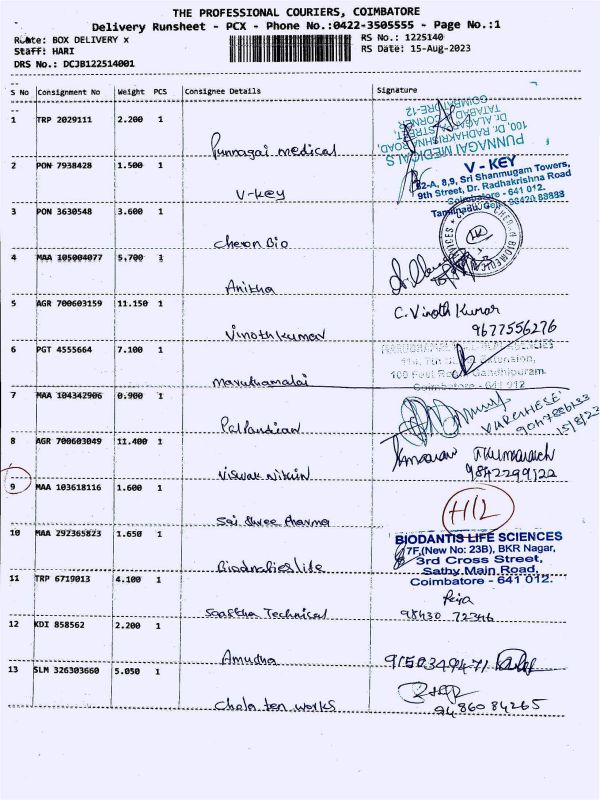 THE PROFESSIONAL COURIERS, COIMBATORE
Delivery Runsheet - PCX - Phone No.:0422-3505555 - Page No.:1
Route: BOX DELIVERY x RS No.: 1225140
Staff: HARI RS Date: 15-Aug-2023
DRS No.: DCJB122514001
S No Consignment No Weight PCS Consignee Details Signature
1 TRP 2029111 2.200 1
Punnagai medical
PUNNAGAI MEDICALS
100, Dr. RADHAKRISHNAN ROAD,
TATABAD CORNER
COIMBATORE-12
2 PON 7938428 1.500 1
V-key
V - KEY
62-A, 8,9, Sri Shanmugam Towers,
9th Street, Dr. Radhakrishna Road
Coimbatore - 641 012.
3 PON 3630548 3.600 1
Cheron Bio
4 MAA 105004077 5.700 1
Anitha
5 AGR 700603159 11.150 1 C. Vinoth Kumar
Vinothkumar 9677556276
6 PGT 4555664 7.100 1
maruthamalai
100 Feet Road, Gandhipuram
Coimbatore - 641 012
7 MAA 104342906 0.900 1
Palpandian
VARGHESE
15/8/23
8 AGR 700603049 11.400 1
Viswak Nikin 9842299122
9 MAA 103618116 1.600 1
Sai Shree Pharma
H12
10 MAA 292365823 1.650 1
BIODANTIS LIFE SCIENCES
7F,(New No: 23B), BKR Nagar,
3rd Cross Street,
Sathy Main Road,
Coimbatore - 641 012.
11 TRP 6719013 4.100 1
Technical 98430 72346
12 KDI 858562 2.200 1
Amudha 9150349471
13 SLM 326303660 5.050 1
Chola ten works 9486084265